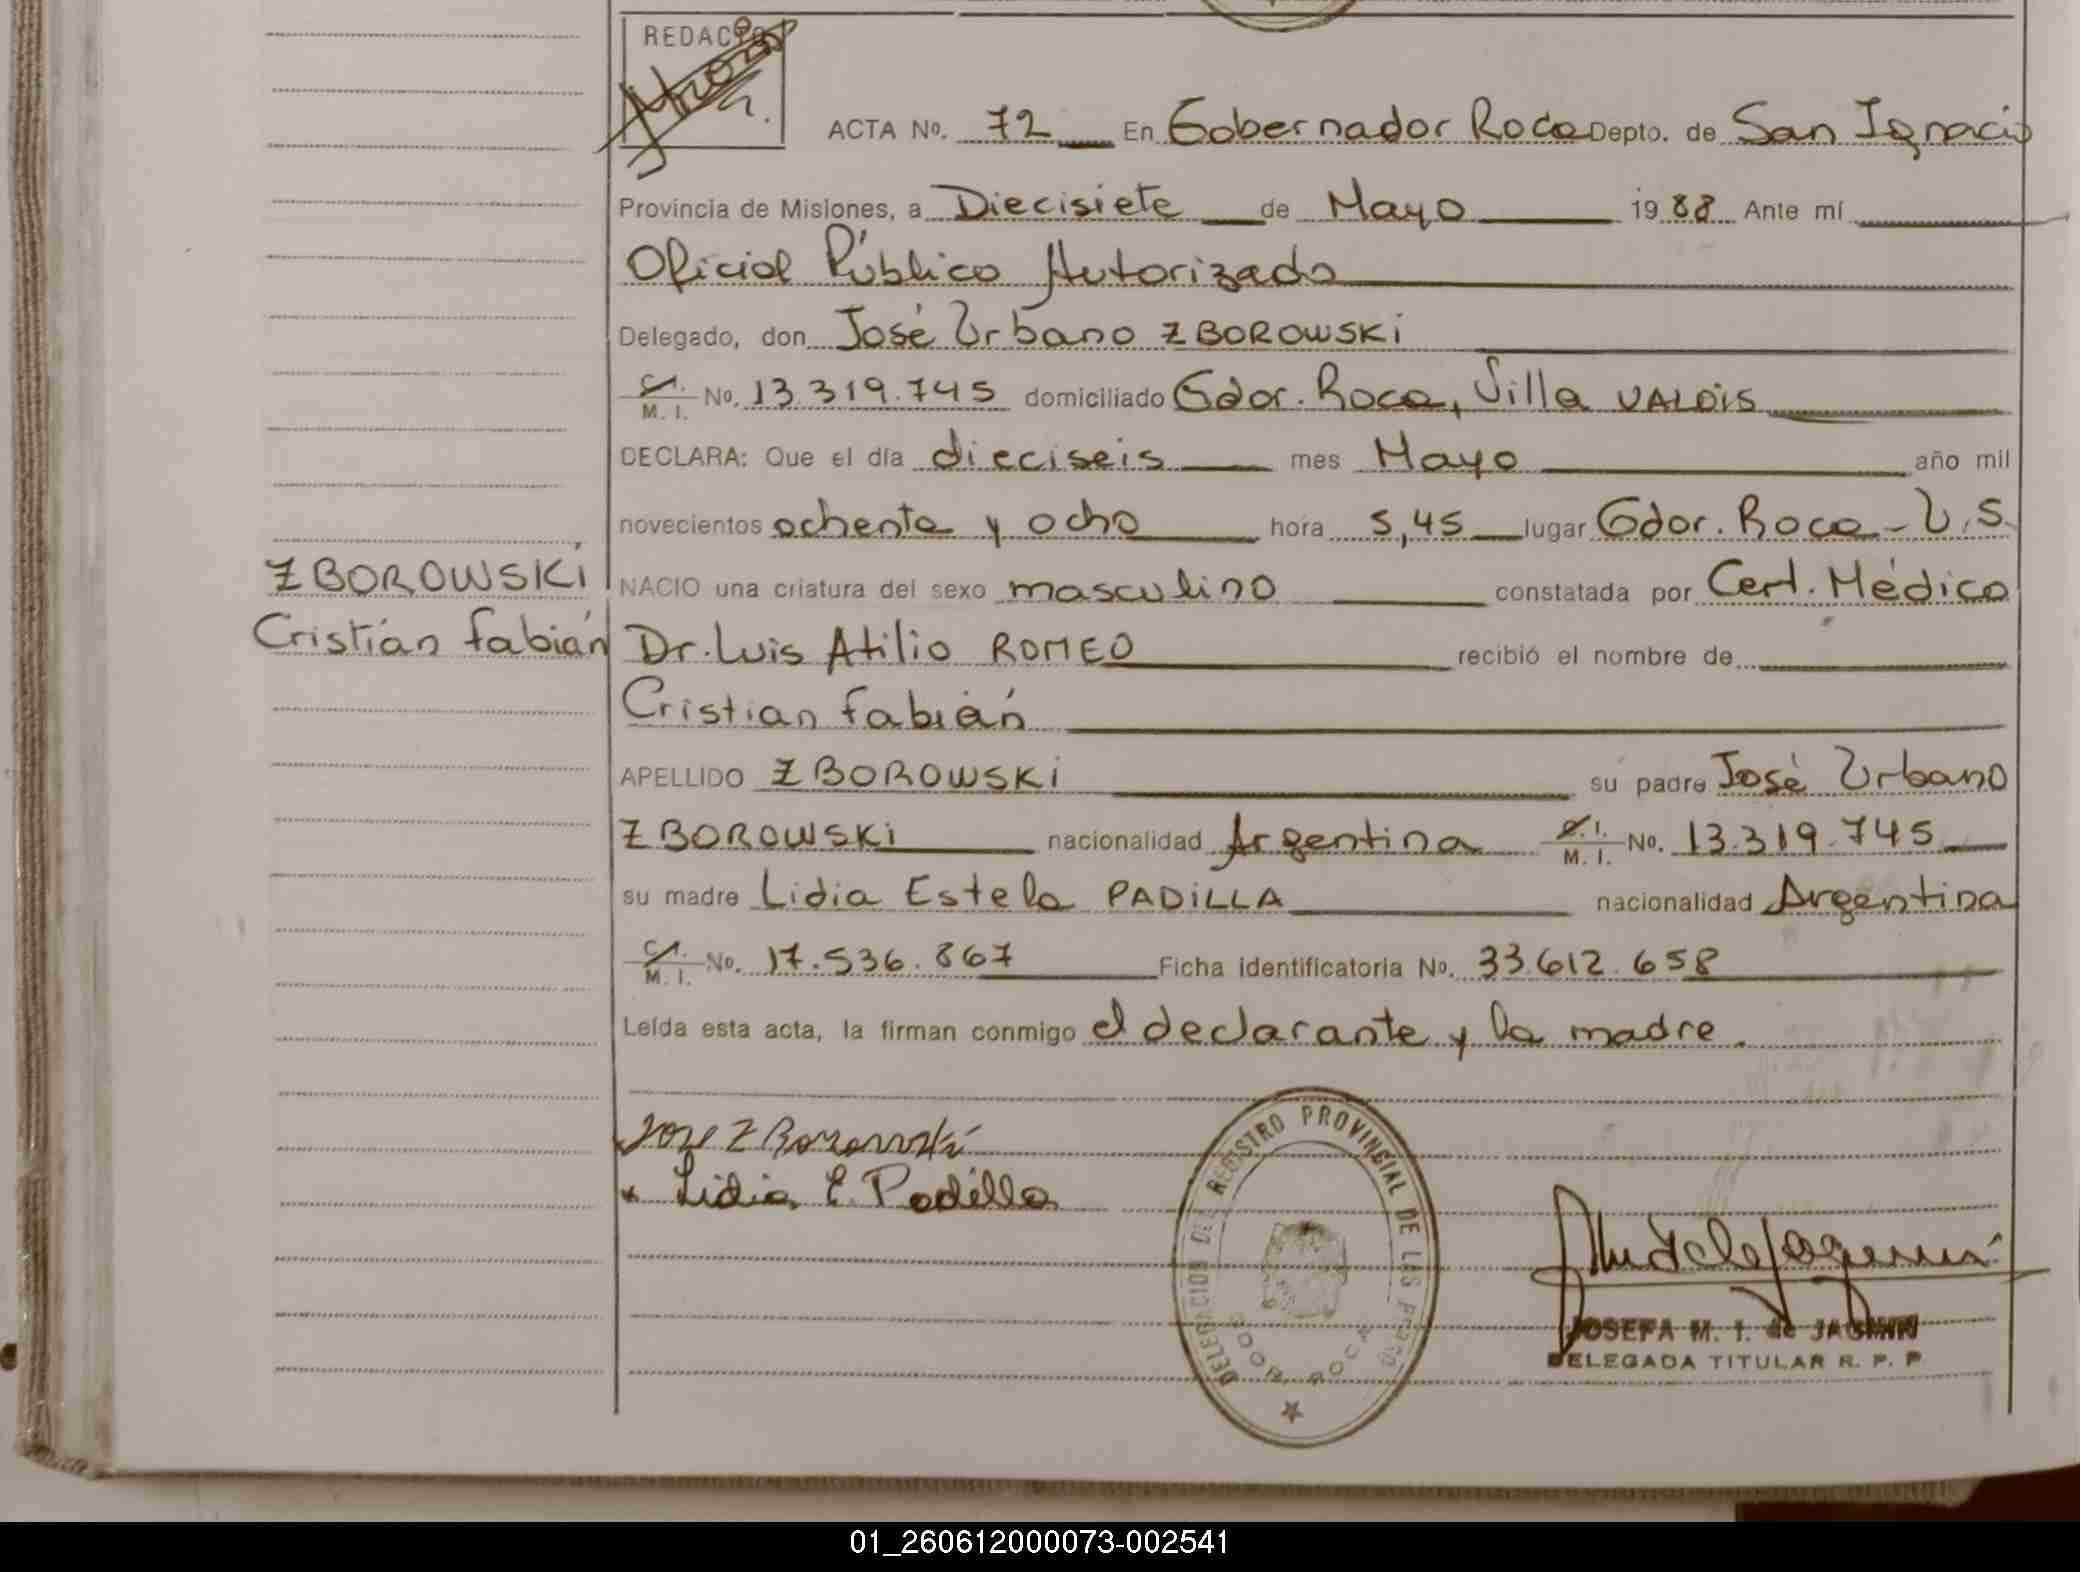 REDACTO
ACTA No. 72 En Gobernador Roca Depto. de San Ignacio
Provincia de Misiones, a Diecisiete de Mayo 1988 Ante mí
Oficial Público Autorizado
Delegado, don José Urbano ZBOROWSKi
C.I. / M. I. No. 13.319.745 domiciliado Gdor. Roca, Villa VALOiS
DECLARA: Que el día dieciseis mes Mayo año mil
novecientos ochenta y ocho hora 5,45 lugar Gdor. Roca - U.S.
ZBOROWSKi
NACIO una criatura del sexo masculino constatada por Cert. Médico
Cristián fabián
Dr. Luis Atilio ROMEO recibió el nombre de
Cristian fabián
APELLIDO ZBOROWSKi su padre José Urbano
ZBOROWSKi nacionalidad Argentina C.I. / M. I. No. 13.319.745
su madre Lidia Estela PADiLLA nacionalidad Argentina
C.I. / M. I. No. 17.536.867 Ficha identificatoria No. 33.612.658
Leída esta acta, la firman conmigo el declarante y la madre.
Jose ZBorowski
Lidia E. Padilla
DELEGACION DEL REGISTRO PROVINCIAL DE LAS
GDOR. ROCA
JOSEFA M. T. de
DELEGADA TITULAR R. P. P
01_260612000073-002541